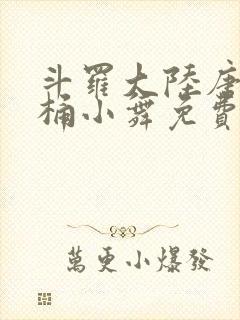 斗羅大陸唐
桶小舞免費
萬更小爆發